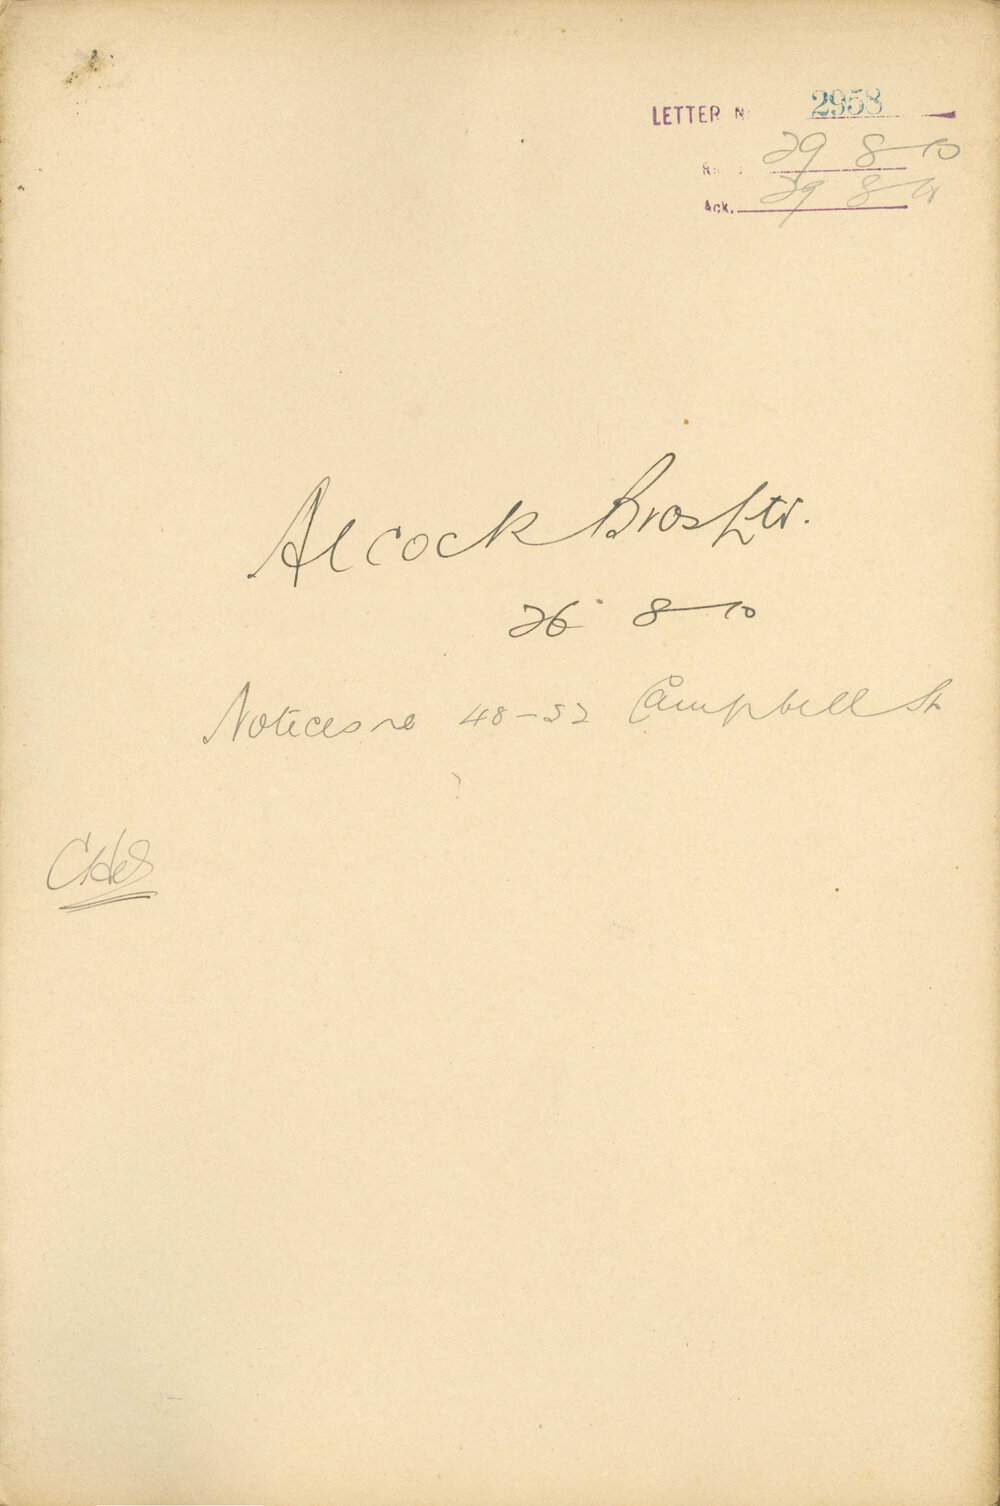 LETTER No 2958
Rec. 29 8-10
Ack. 29 8-10
Alcock Bros Ltd.
26 8-10
Notices re 48-52 Campbell St